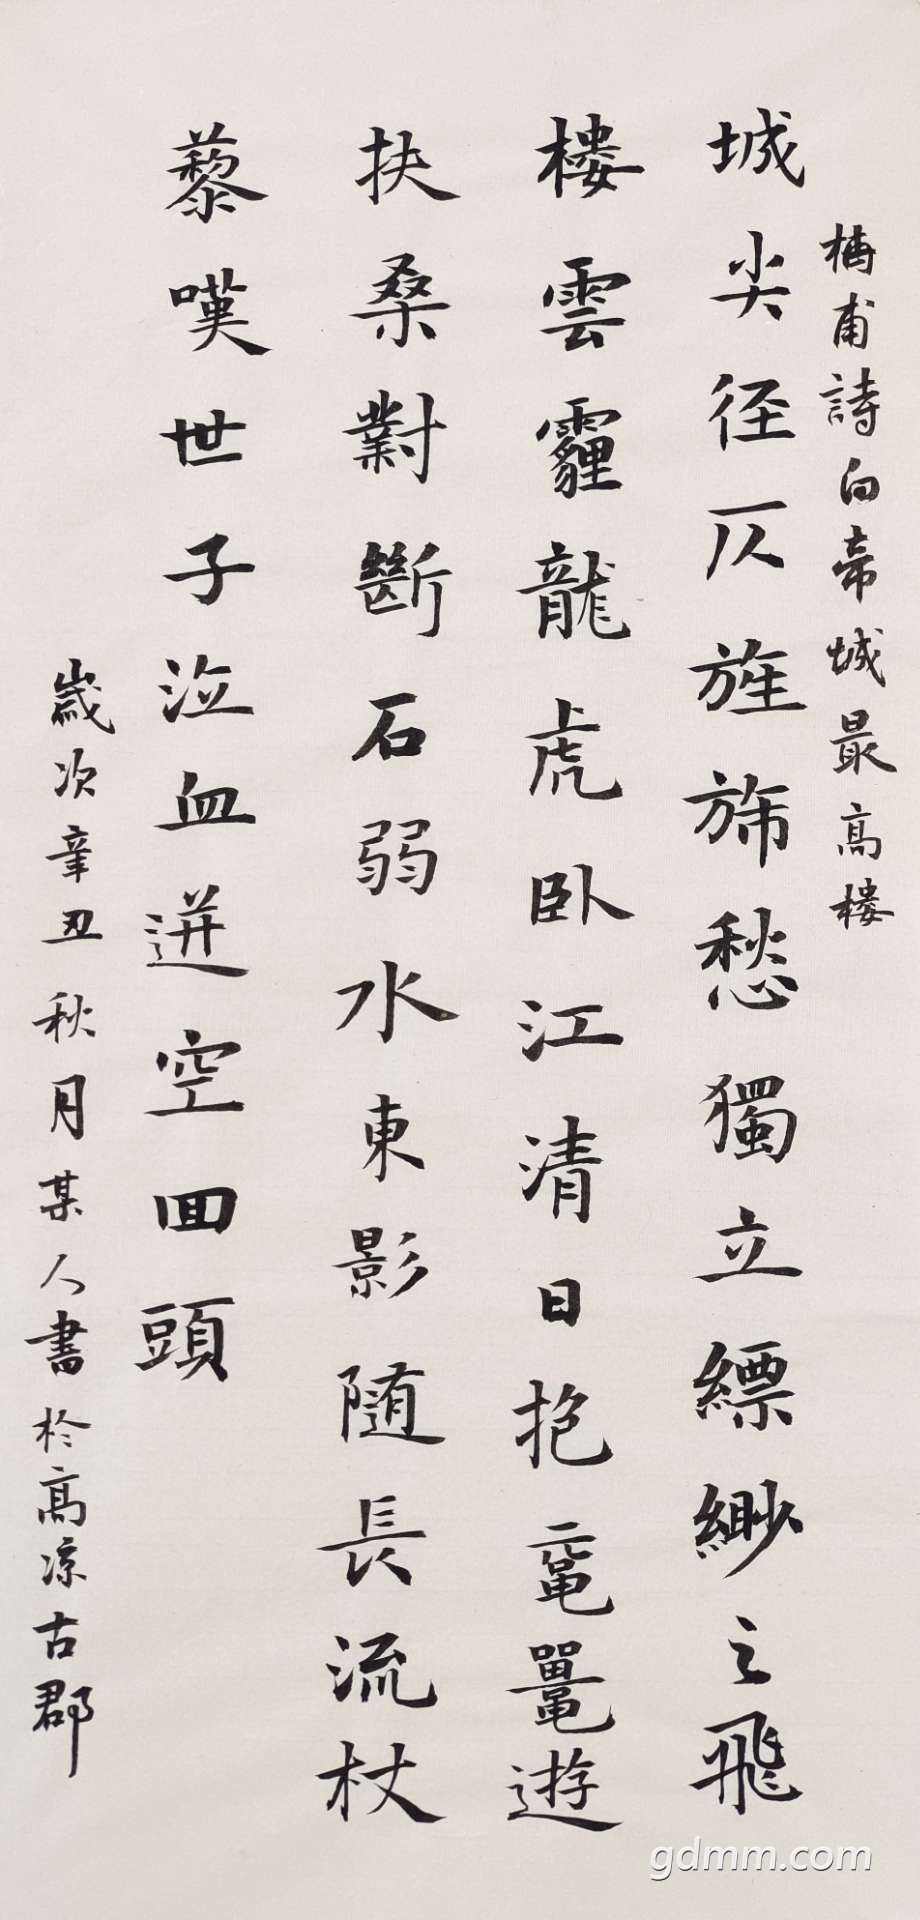 甫詩白帝城最高楼
城尖径仄旌旆愁獨立縹緲之飛
楼雲霾龍虎卧江清日抱黿鼉遊
扶桑對斷石弱水東影随長流杖
藜嘆世子泣血迸空回頭
歲次辛丑秋月某人書於高凉古郡
gdmm.com